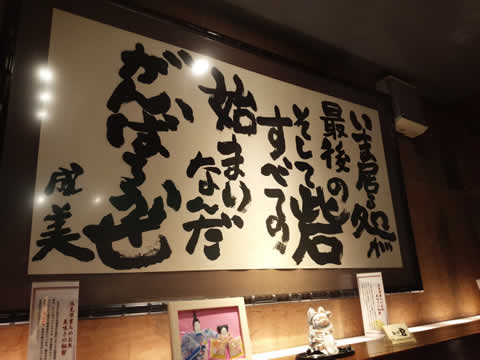 いま居る処が
最後の砦
そして
すべての
始まりなんだ
がんばろうぜ
成美